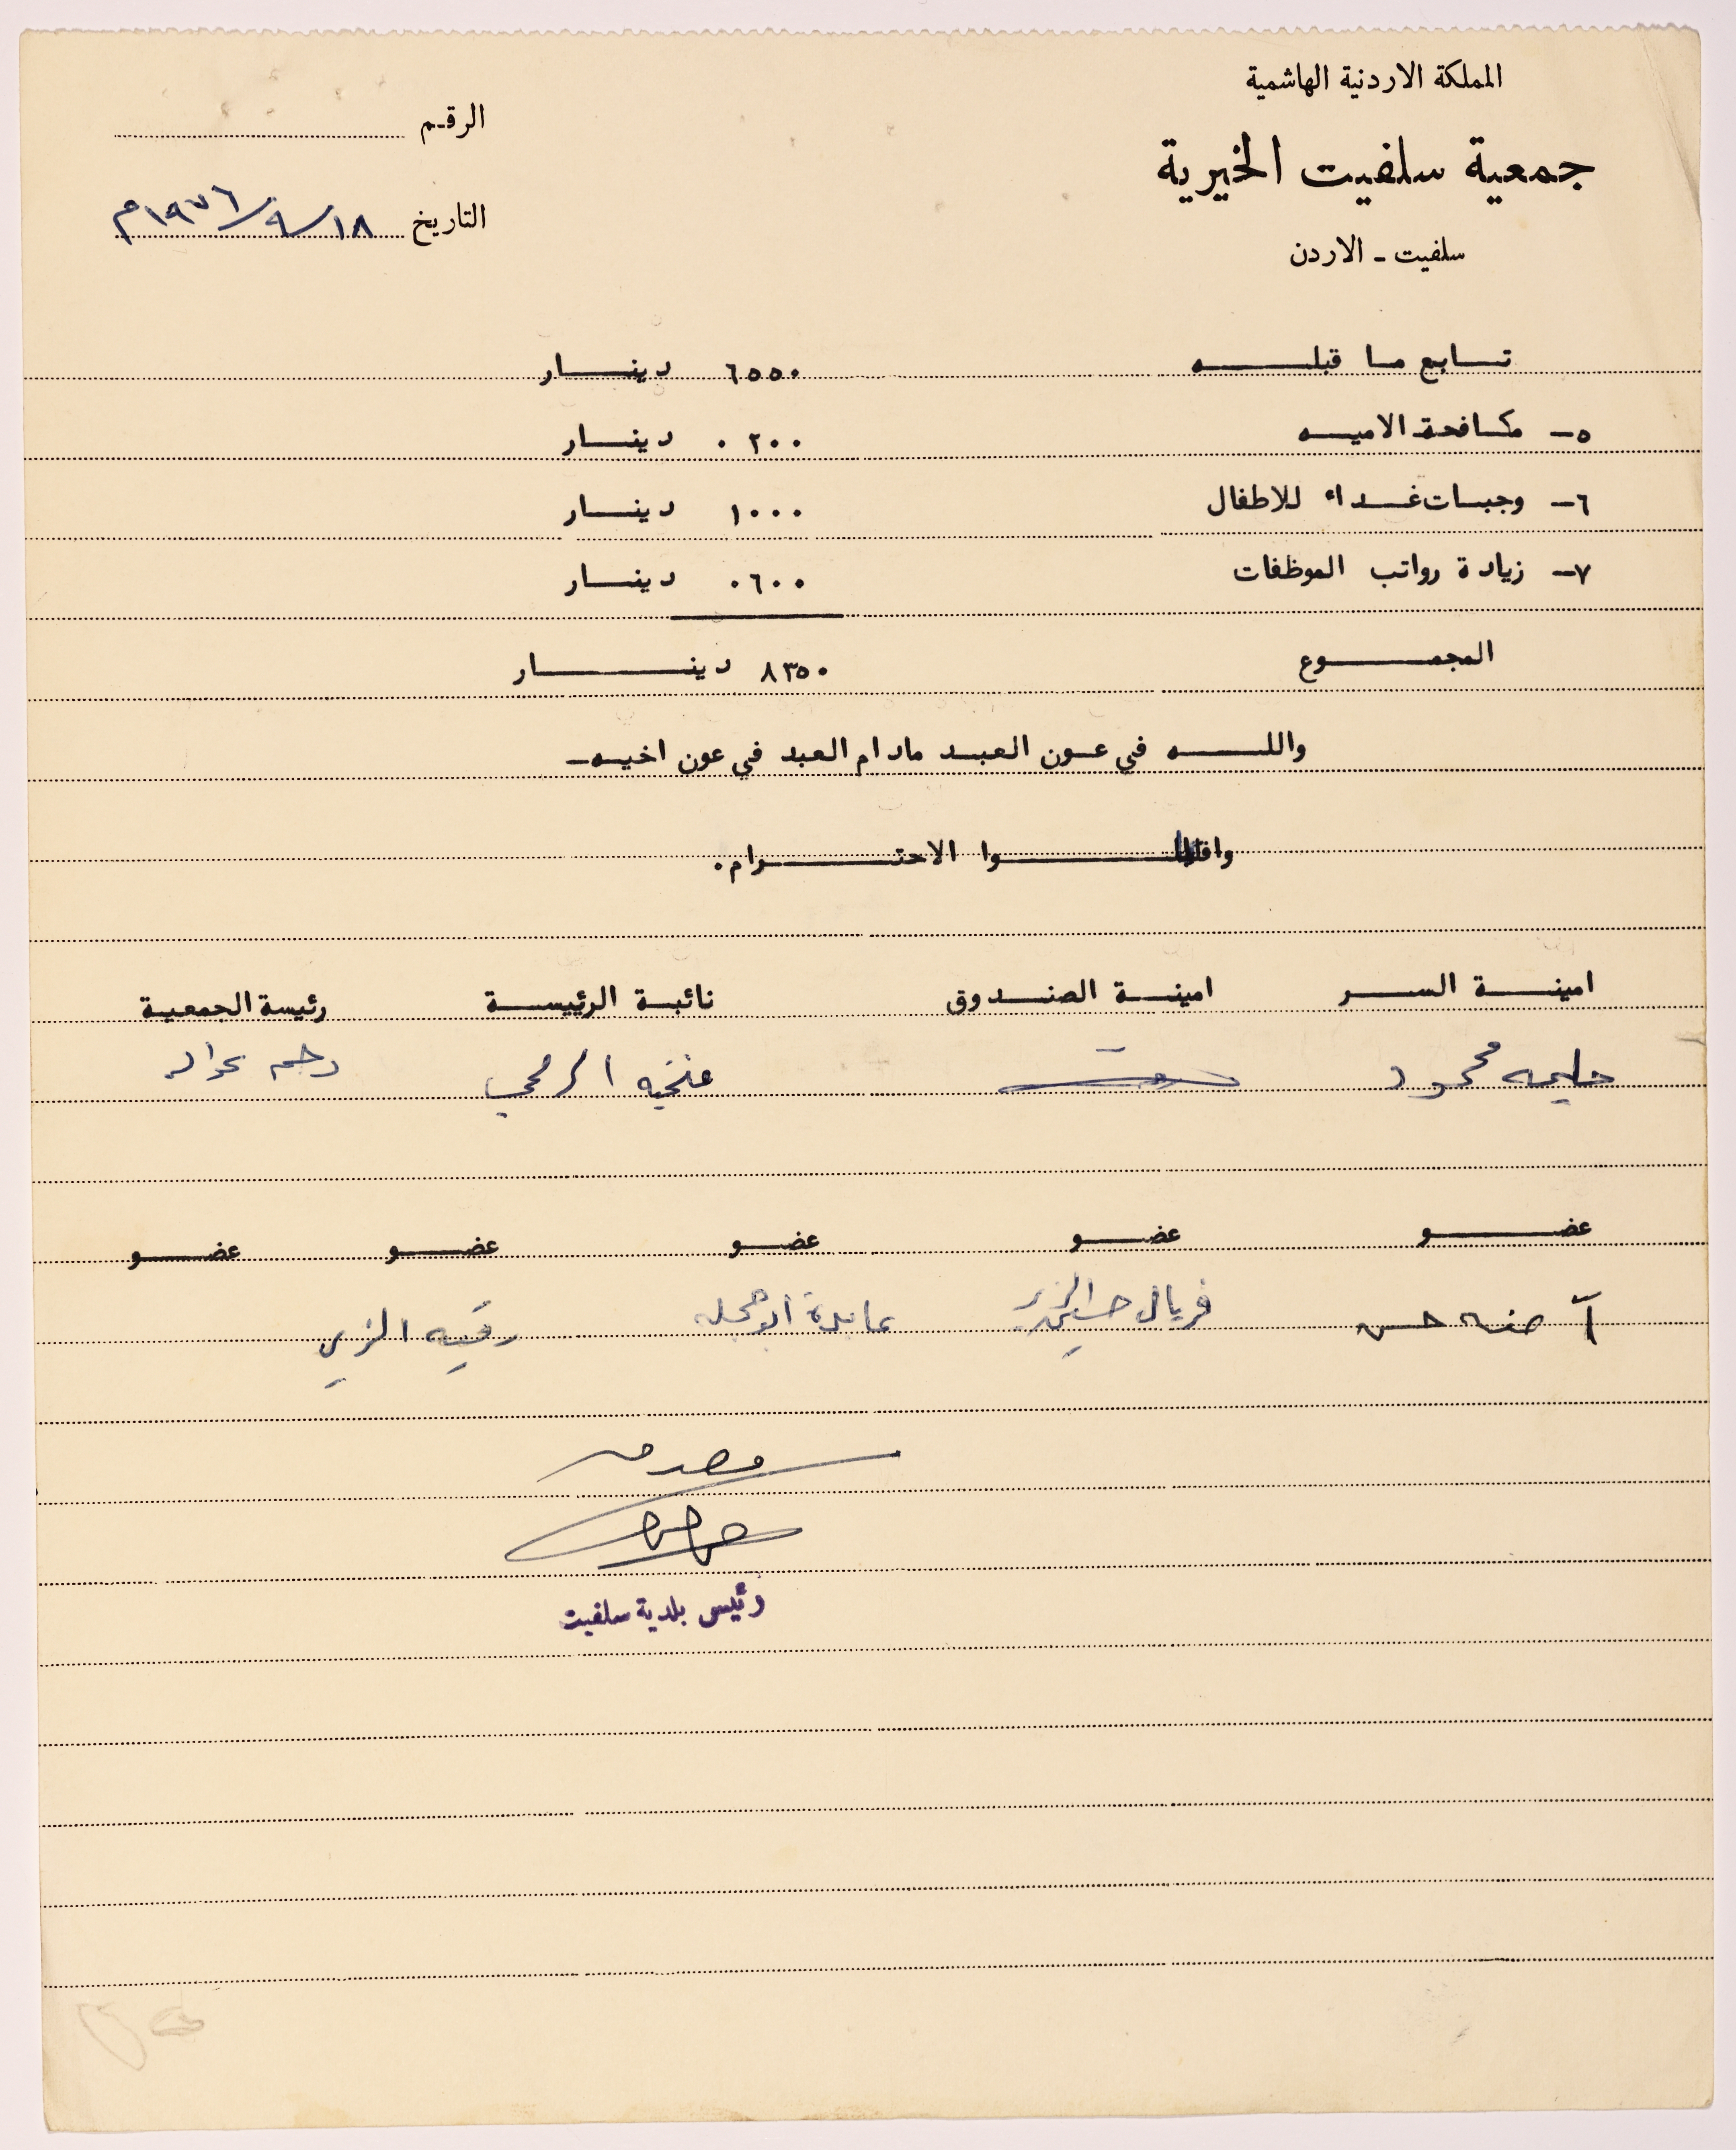 المملكة الاردنية الهاشمية
جمعية سلفيت الخيرية
سلفيت - الاردن
الرقم
التاريخ ١٨/٩/١٩٧٦م
تابع ما قبله ٦٥٥٠ دينار
٥- مكافحة الاميه ٠٢٠٠ دينار
٦- وجبات غداء للاطفال ١٠٠٠ دينار
٧- زيادة رواتب الموظفات ٠٦٠٠ دينار
المجموع ٨٣٥٠ دينار
والله في عون العبد مادام العبد في عون اخيه-
الاحترام.
امينة السر امينة الصندوق نائبة الرئيسة رئيسة الجمعية
حليمه محمود
عضو عضو عضو عضو عضو
آمنه حسن فريال حسين الزير عايدة رقيه الزير
مصدق
رئيس بلدية سلفيت